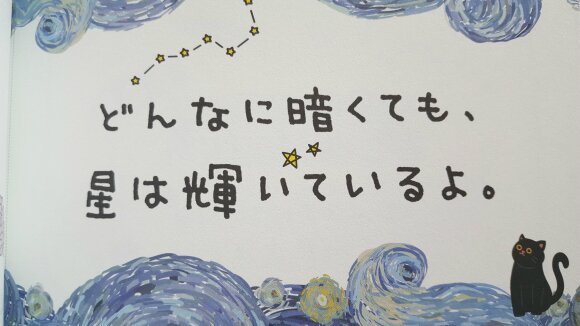 どんなに暗くても、
星は輝いているよ。